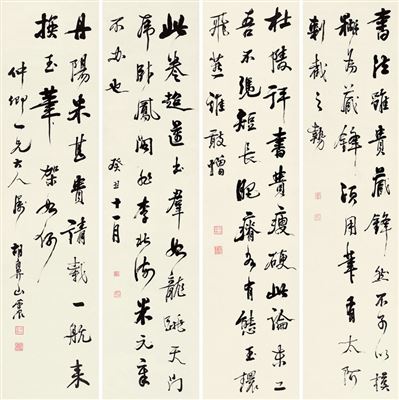 書法雖貴藏鋒然不可以模
糊為藏鋒須用筆有太阿
剸截之勢
杜陵評書貴瘦硬此論未公
吾不憑短長肥瘠各有態玉環
飛燕誰敢憎
此卷超出羣如龍跳天門
虎卧鳳閣非李北海米元章
不办也 癸丑十一月
丹陽米甚貴請載一航來
換玉筆架如何
仲卿一兄大人屬 胡鼻山震